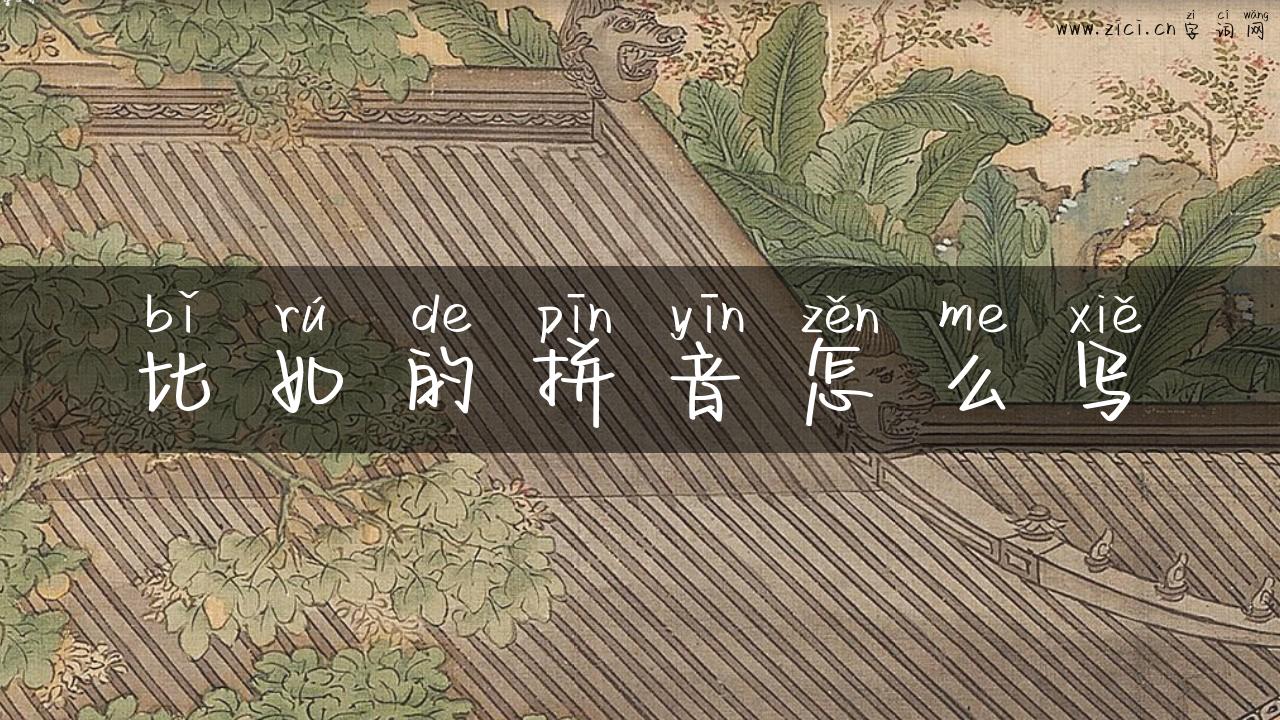 zì cí wǎng
www.zici.cn 字词网
bǐ rú de pīn yīn zěn me xiě
比如的拼音怎么写